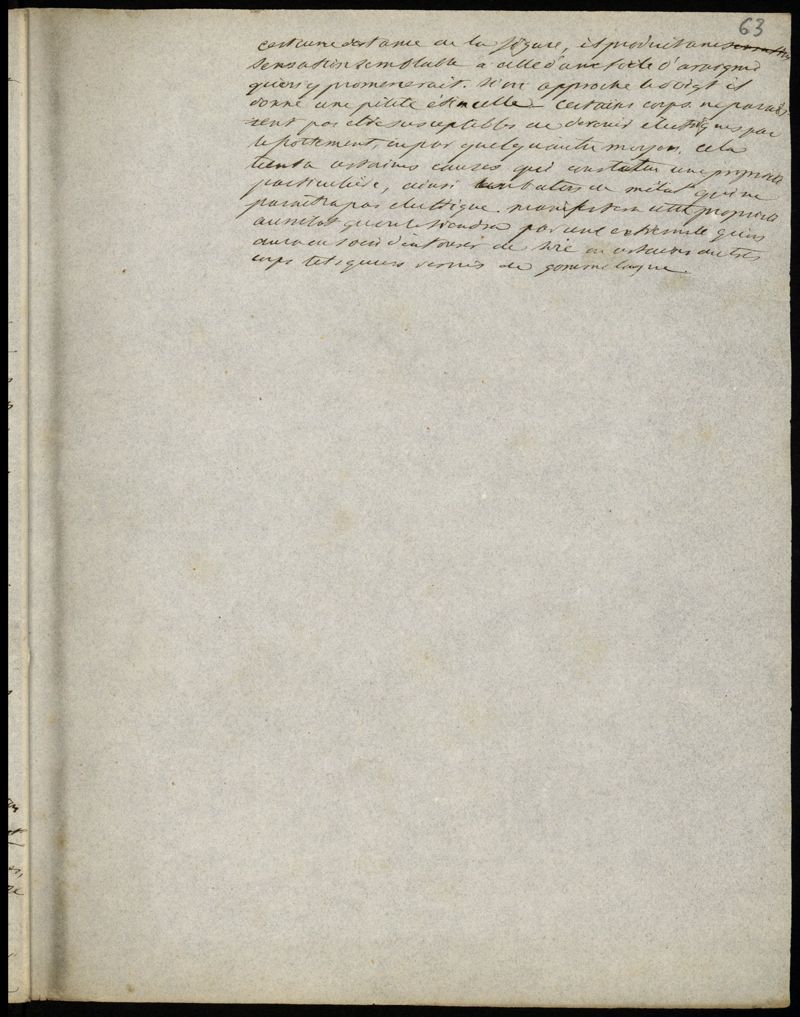 63
certaine distance de la figure, il produit une sensation
sensation semblable à celle d'une toile d'araignée
qu'on y promenerait. Si on approche le doigt il
donne une petite étincelle. Certains corps ne parais-
sent pas être susceptibles de devenir électriques par
le frottement, ou par quelqu'autre moyen. cela
tient à certaines causes qui constatent une propriété
particulière, ainsi un baton de métal qui ne
paraitra pas électrique. manifestera cette propriété
aussitot qu'on le tiendra par une extrémité qu'on
aura eu soin d'entourer de soie ou certains autres
corps tels qu'un vernis de gomme laque.